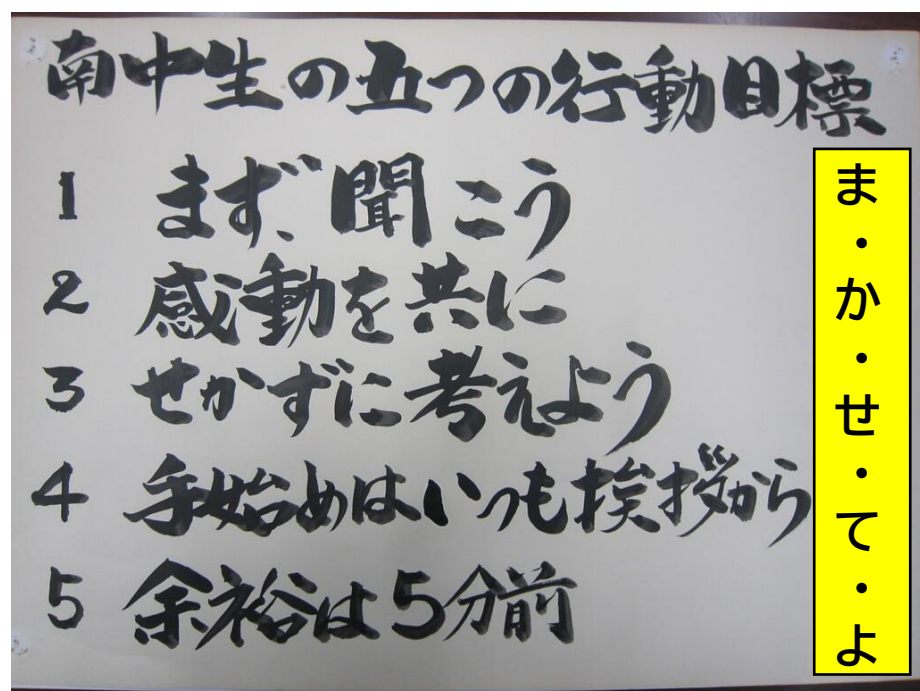 南中生の五つの行動目標
1 まず、聞こう
2 感動を共に
3 せかずに考えよう
4 手始めはいつも挨拶から
5 余裕は5分前
ま・か・せ・て・よ